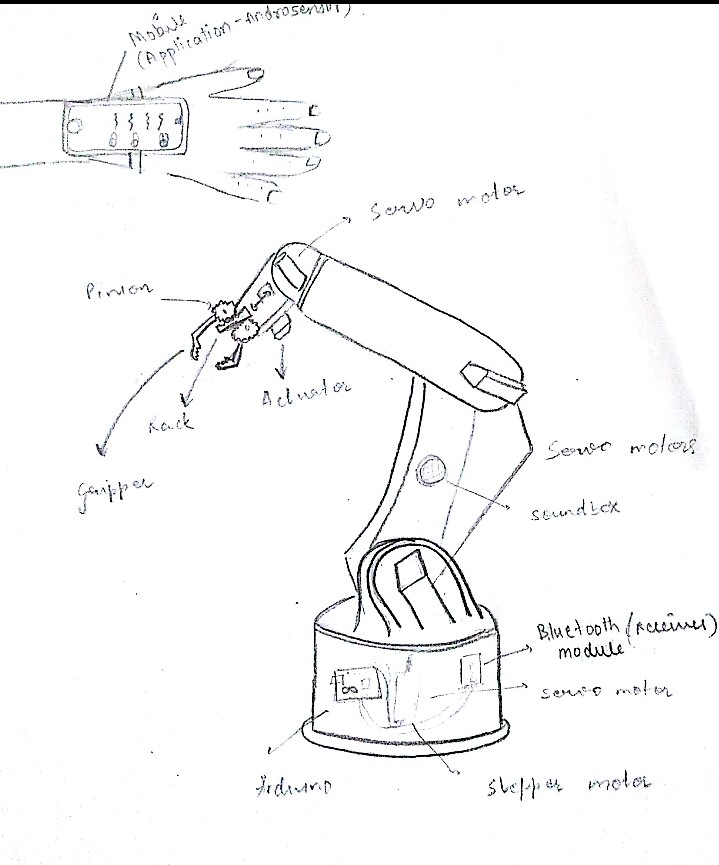 Mobile
(Application-Androsensor).
Servo motor
Pinion
Actuator
Rack
Gripper
Servo motors
soundbox
Bluetooth (receiver)
module
servo motor
Arduino
Stepper motor